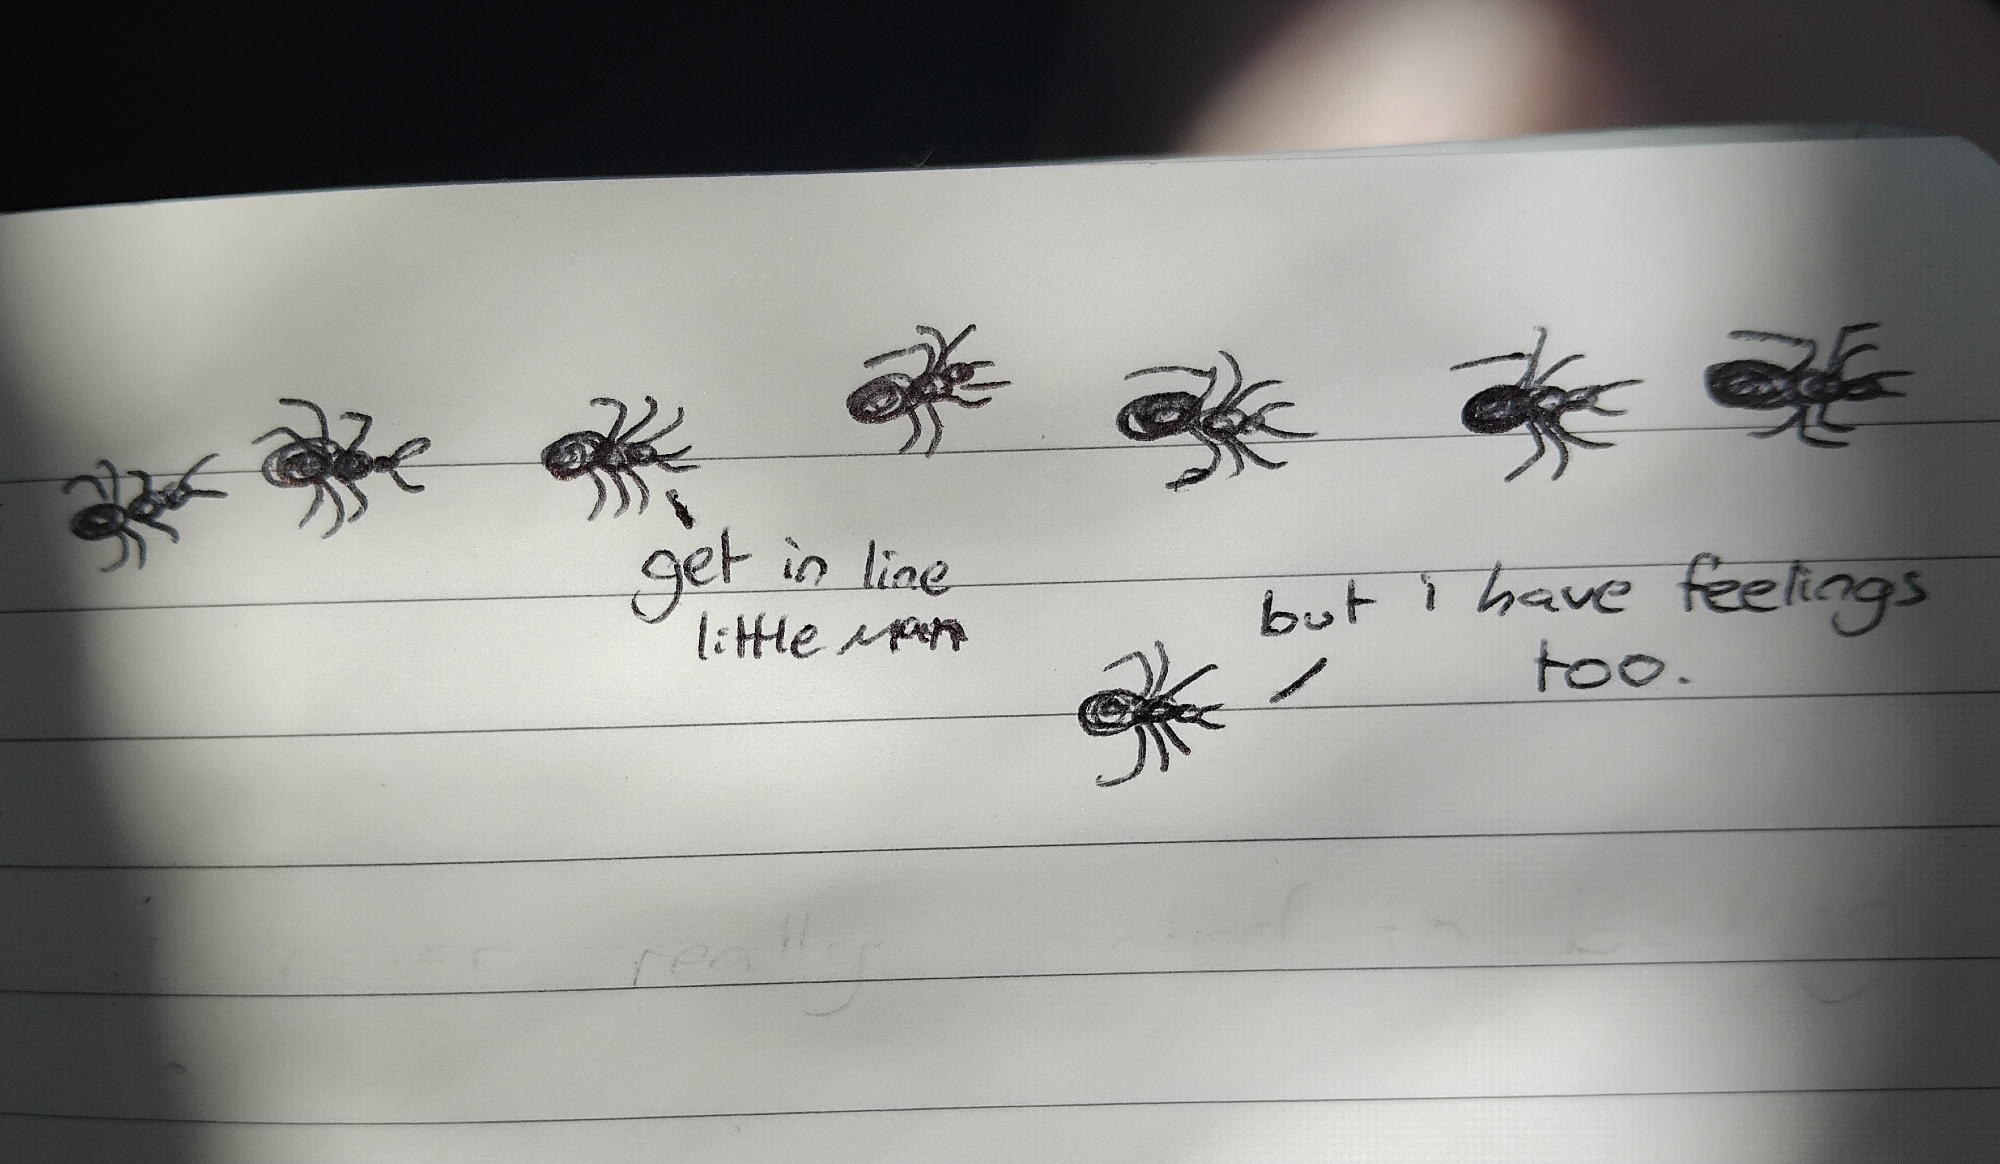 get in line
little man
but i have feelings
too.
really